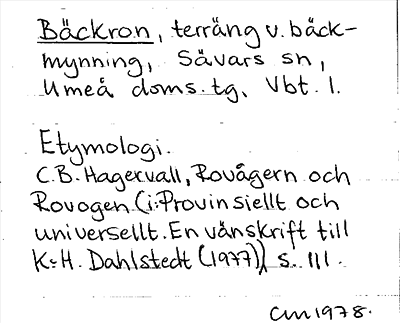 Bäckron, terräng v. bäck-
mynning, Sävars sn,
Umeå doms.tg, Vbt. l.
Etymologi.
C.B. Hagervall, Rovågern och
Rovogen (i: Provinsiellt och
universellt. En vänskrift till
K-H. Dahlstedt (1977)), s. 111.
CM 1978.